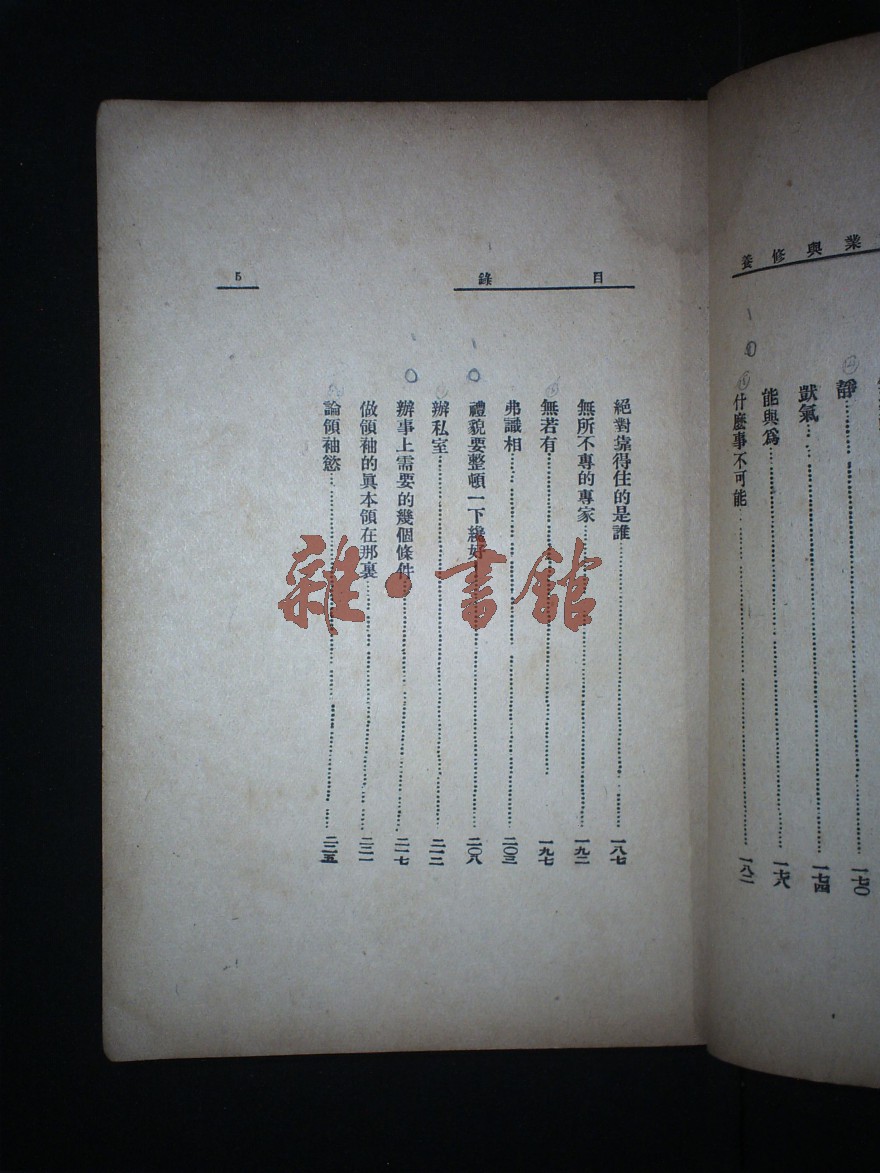 業與修養
靜 一七〇
獃氣 一七四
能與爲 一七八
什麼事不可能 一八二
目錄
5
絕對靠得住的是誰 一八七
無所不專的專家 一九二
無若有 一九七
弗識相 二〇三
禮貌要整頓一下纔好 二〇八
辦私室 二一二
辦事上需要的幾個條件 二一七
做領袖的眞本領在那裏 二二一
論領袖慾 二二五
雜·書館